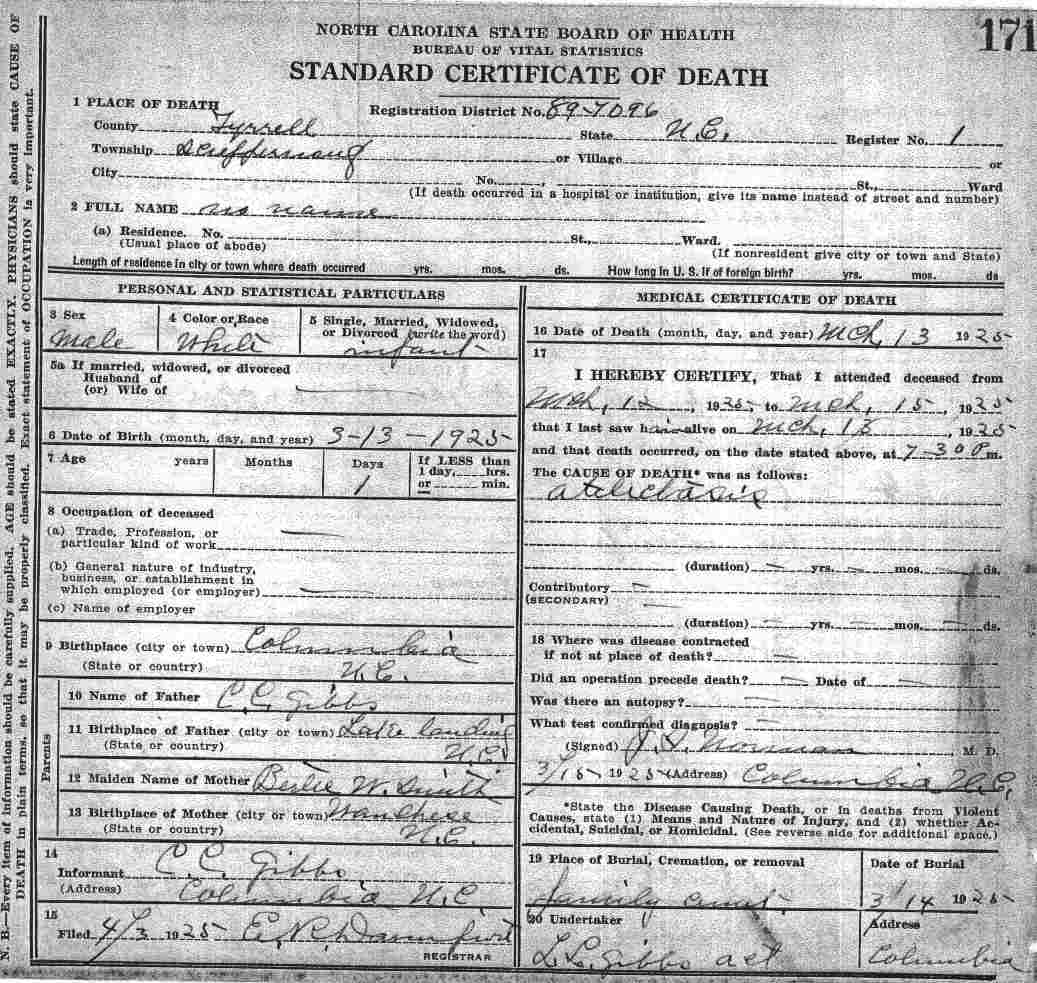 171
NORTH CAROLINA STATE BOARD OF HEALTH
BUREAU OF VITAL STATISTICS
STANDARD CERTIFICATE OF DEATH
1 PLACE OF DEATH
Registration District No. 89-7096
County Tyrrell State N.C. Register No. 1
Township or Village or
City No. , St., Ward
(If death occurred in a hospital or institution, give its name instead of street and number)
2 FULL NAME no name
(a) Residence. No. St., Ward.
(Usual place of abode) (If nonresident give city or town and State)
Length of residence in city or town where death occurred yrs. mos. ds. How long in U. S. if of foreign birth? yrs. mos. ds
PERSONAL AND STATISTICAL PARTICULARS
3 Sex 4 Color or Race 5 Single, Married, Widowed, or Divorced (write the word)
Male White infant
5a If married, widowed, or divorced
Husband of
(or) Wife of
6 Date of Birth (month, day, and year) 3-13-1925
7 Age years Months Days If LESS than
1 day, hrs.
1 or min.
8 Occupation of deceased
(a) Trade, Profession, or
particular kind of work
(b) General nature of industry,
business, or establishment in
which employed (or employer)
(c) Name of employer
9 Birthplace (city or town) Columbia
(State or country) N.C.
Parents
10 Name of Father C.C. Gibbs
11 Birthplace of Father (city or town) Lake Landing
(State or country) N.C.
12 Maiden Name of Mother W. Smith
13 Birthplace of Mother (city or town) Wanchese
(State or country) N.C.
14
Informant C.C. Gibbs
(Address) Columbia N.C.
15
Filed 4/3 1925
REGISTRAR
MEDICAL CERTIFICATE OF DEATH
16 Date of Death (month, day, and year) Mch, 13 1925
17
I HEREBY CERTIFY, That I attended deceased from
Mch, 12, 1925, to Mch, 15, 1925
that I last saw him alive on Mch, 1925
and that death occurred, on the date stated above, at 7-30 P m.
The CAUSE OF DEATH* was as follows:
atelictasis
(duration) yrs. mos. ds.
Contributory
(SECONDARY)
(duration) yrs. mos. ds.
18 Where was disease contracted
if not at place of death?
Did an operation precede death? Date of
Was there an autopsy?
What test confirmed diagnosis?
(Signed) Norman, M. D.
3/15 1925 (Address) Columbia N.C.
*State the Disease Causing Death, or in deaths from Violent
Causes, state (1) Means and Nature of Injury, and (2) whether Ac-
cidental, Suicidal, or Homicidal. (See reverse side for additional space.)
19 Place of Burial, Cremation, or removal Date of Burial
family 3/14 1925
20 Undertaker Address
L.C. Gibbs act Columbia
N. B.—Every item of information should be carefully supplied. AGE should be stated EXACTLY. PHYSICIANS should state CAUSE OF
DEATH in plain terms, so that it may be properly classified. Exact statement of OCCUPATION is very important.